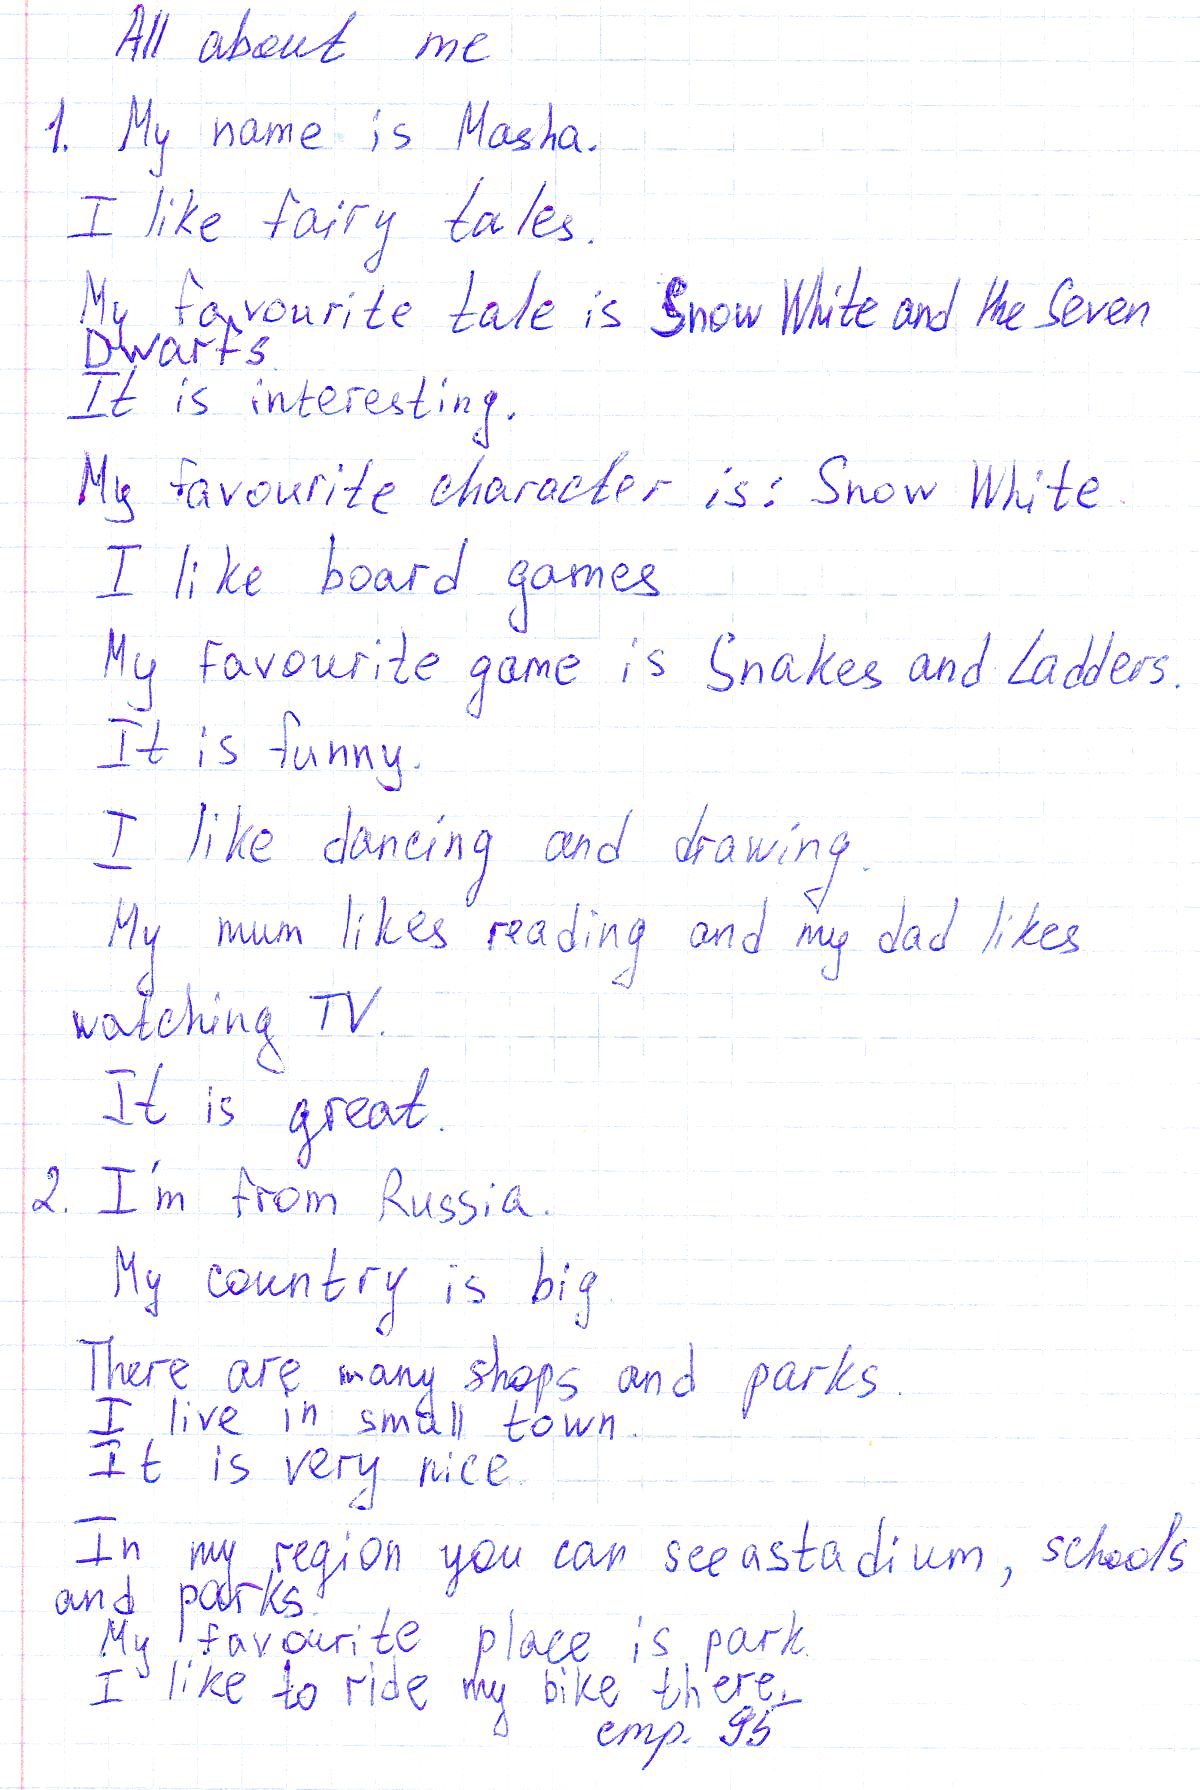 All about me
1. My name is Masha.
I like fairy tales.
My favourite tale is Snow White and the Seven
Dwarfs.
It is interesting.
My favourite character is: Snow White
I like board games
My favourite game is Snakes and Ladders.
It is funny.
I like dancing and drawing.
My mum likes reading and my dad likes
watching TV.
It is great.
2. I'm from Russia.
My country is big.
There are many shops and parks.
I live in small town.
It is very nice.
In my region you can see a stadium, schools
and parks.
My favourite place is park.
I like to ride my bike there.
стр. 95